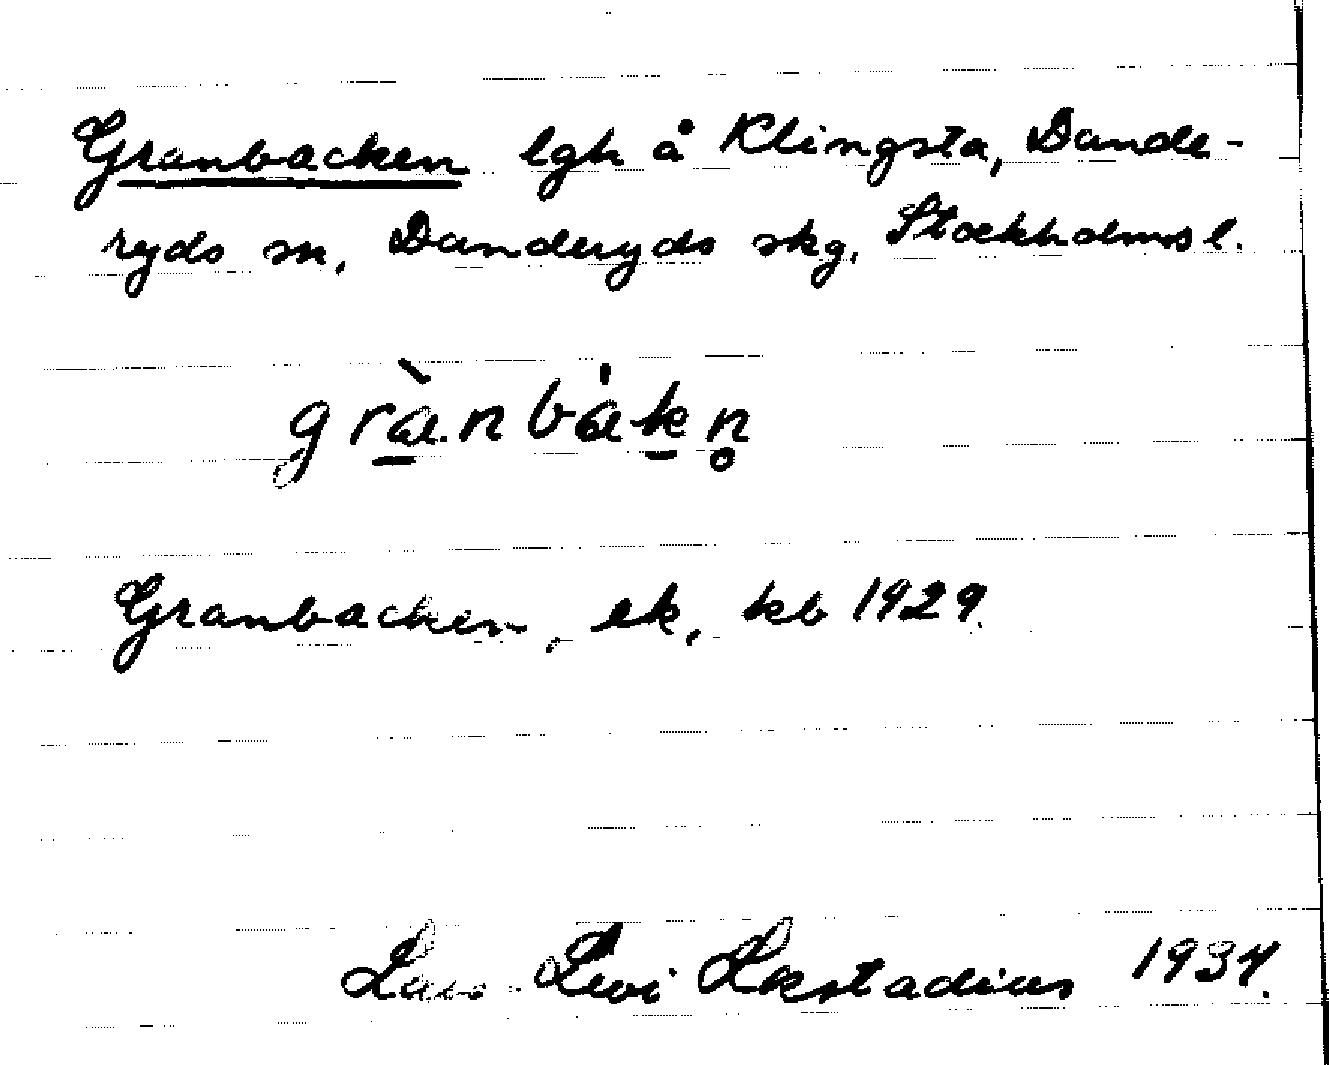 Granbacken lgh å Klingsta, Dande-
ryds sn, Danderyds skg, Stockholms l.
grànbákn̥
Granbacken, ek, kb 1929.
Lars-Levi Læstadius 1937.